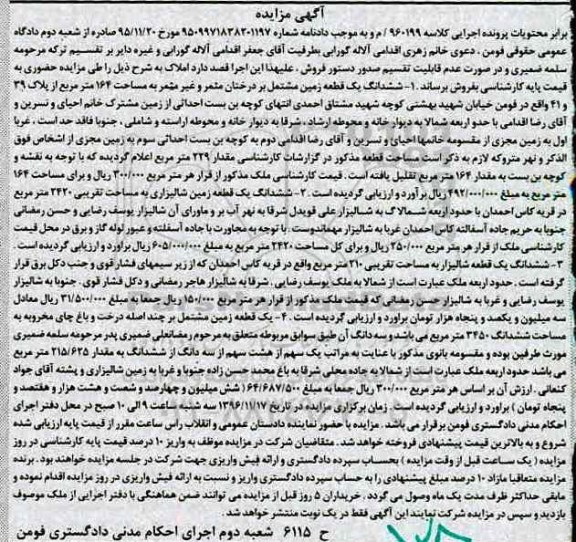 آگهی مزایده
برابر محتویات پرونده اجرایی کلاسه ۹۶۰۱۹۹ / م و به موجب دادنامه شماره ۹۵۰۹۹۷۱۸۳۸۲۰۱۱۹۷ مورخ ۹۵/۱۱/۲۰ صادره از شعبه دوم دادگاه
عمومی حقوقی فومن . دعوی خانم زهری اقدامی آلاله گورابی بطرفیت آقای جعفر اقدامی آلاله گورابی و غیره دایر بر تقسیم ترکه مرحومه
سلمه ضمیری و در صورت عدم قابلیت تقسیم صدور دستور فروش ، علیهذا این اجرا قصد دارد املاک به شرح ذیل را طی مزایده حضوری به
قیمت پایه کارشناسی بفروش برساند .۱- ششدانگ یک قطعه زمین مشتمل بر درختان مثمر و غیر مثمر به مساحت ۱۶۴ متر مربع از پلاک ۳۹
و ۴۱ واقع در فومن خیابان شهید بهشتی کوچه شهید مشتاق احمدی انتهای کوچه بن بست احداثی از زمین مشترک خانم احیای و نسرین و
آقای رضا اقدامی با حدو اربعه شمالا به دیوار خانه و محوطه ارشاد ، شرقا به دیوار خانه و محوطه اراسته و شاملی ، جنوبا فاقد حد است . غربا
اول به زمین مجزی از مقسومه خانمها احیای و نسرین و آقای رضا اقدامی دوم به کوچه بن بست احداثی سوم به زمین مجزی از اشخاص فوق
الذکر و نهر متروکه لازم به ذکر است مساحت قطعه مذکور در گزارشات کارشناسی مقدار ۲۲۹ متر مربع اعلام گردیده که با توجه به نقشه و
کوچه بن بست به مقدار ۱۶۴ متر مربع تقلیل یافته است . قیمت کارشناسی ملک مذکور از قرار هر متر مربع ۳/۰۰۰/۰۰۰ ریال و برای مساحت ۱۶۴
متر مربع به مبلغ ۴۹۲/۰۰۰/۰۰۰ ریال برآورد و ارزیابی گردیده است . ۲- ششدانگ یک قطعه زمین شالیزاری به مساحت تقریبی ۲۴۲۰ متر مربع
در قریه کاس احمدان با حدود اربعه شمالا به شالیزار علی قویدل شرقا به نهر آب بر و ماورای آن شالیزار یوسف رضایی و حسن رمضانی
جنوبا به حریم جاده آسفالته کاس احمدان غربا به شالیزار مهماندوست . با توجه به مجاورت با جاده آسفلته و عبور لوله گاز و برق در محل قیمت
کارشناسی ملک از قرار هر متر مربع ۲۵۰/۰۰۰ ریال و برای کل مساحت ۲۴۲۰ متر مربع به مبلغ ۶۰۵/۰۰۰/۰۰۰ ریال برآورد و ارزیابی گردیده است .
۳- ششدانگ یک قطعه شالیزار به مساحت تقریبی ۲۱۰ متر مربع واقع در قریه کاس احمدان که از زیر سیمهای فشار قوی و جنب دکل برق قرار
گرفته است . حدود اربعه ملک عبارت است از شمالا به ملک یوسف رضایی . شرقا به شالیزار هاجر رمضانی و دکل فشار قوی . جنوبا به شالیزار
یوسف رضایی و غربا به شالیزار حسن رمضانی که قیمت ملک مذکور از قرار هر متر مربع ۱۵۰/۰۰۰ ریال جمعا به مبلغ ۳۱/۵۰۰/۰۰۰ ریال معادل
سه میلیون و یکصد و پنجاه هزار تومان براورد و ارزیابی گردیده است . ۴- یک قطعه زمین مشتمل بر چند اصله درخت و باغ چای مخروبه به
مساحت ششدانگ ۳۴۵۰ متر مربع می باشد و سه دانگ آن طبق سوابق مربوطه متعلق به مرحوم رمضانعلی ضمیری پدر مرحومه سلمه ضمیری
مورث طرفین بوده و مقسومه بانوی مذکور با عنایت به مراتب یک سهم از هشت سهم از سه دانگ از ششدانگ به مقدار ۲۱۵/۶۲۵ متر مربع
می باشد حدود اربعه ملک عبارت است از شمالا به جاده محلی شرقا به باغ محمد حسن زاده جنوبا و غربا به زمین شالیزاری و پشته آقای جواد
کنعانی . ارزش آن بر اساس هر متر مربع ۳۰۰/۰۰۰ ریال جمعا به مبلغ ۶۴/۶۸۷/۵۰۰( شش میلیون و چهارصد و شصت و هشت هزار و هفتصد و
پنجاه تومان ) براورد و ارزیابی گردیده است . زمان برگزاری مزایده در تاریخ ۱۳۹۶/۱۱/۱۷ سه شنبه ساعت ۹ الی ۱۰ صبح در محل دفتر اجرای
احکام مدنی دادگستری فومن برقرار می باشد . مزایده با حضور نماینده دادستان عمومی و انقلاب راس ساعت مقرر از قیمت پایه ارزیابی شده
شروع و به بالاترین قیمت پیشنهادی فروخته خواهد شد . متقاضیان شرکت در مزایده موظف به واریز ۱۰ درصد قیمت پایه کارشناسی در روز
مزایده ( یک ساعت قبل از وقت مزایده ) بحساب سپرده دادگستری و ارائه فیش واریزی جهت شرکت در جلسه مزایده خواهند بود . برنده
مزایده متعاقبا مازاد ۱۰ درصد مبلغ پیشنهادی را به حساب سپرده دادگستری واریز و نسبت به ارائه فیش واریزی در روز مزایده اقدام نموده و
مابقی حداکثر ظرف مدت یک ماه وصول می گردد . خریداران ۵ روز قبل از مزایده می توانند ضمن هماهنگی با دفتر اجرایی از ملک موصوف
بازدید و سپس در مزایده شرکت نمایند این آگهی فقط در یک نوبت منتشر خواهد شد .
ح ۶۱۱۵ شعبه دوم اجرای احکام مدنی دادگستری فومن